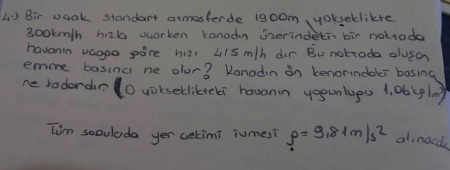 4.) Bir uçak standart atmosferde 1900m yükseklikte
300km/h hızla uçarken kanadın üzerindeki bir noktada
havanın uçağa göre hızı 415m/h dır. Bu noktada oluşan
emme basıncı ne olur? Kanadın ön kenarındaki basınç
ne kadardır (O yükseklikteki havanın yoğunluğu 1,06kg/m³)
Tüm sorularda yer çekimi ivmesi g=9,81m/s² alınacak